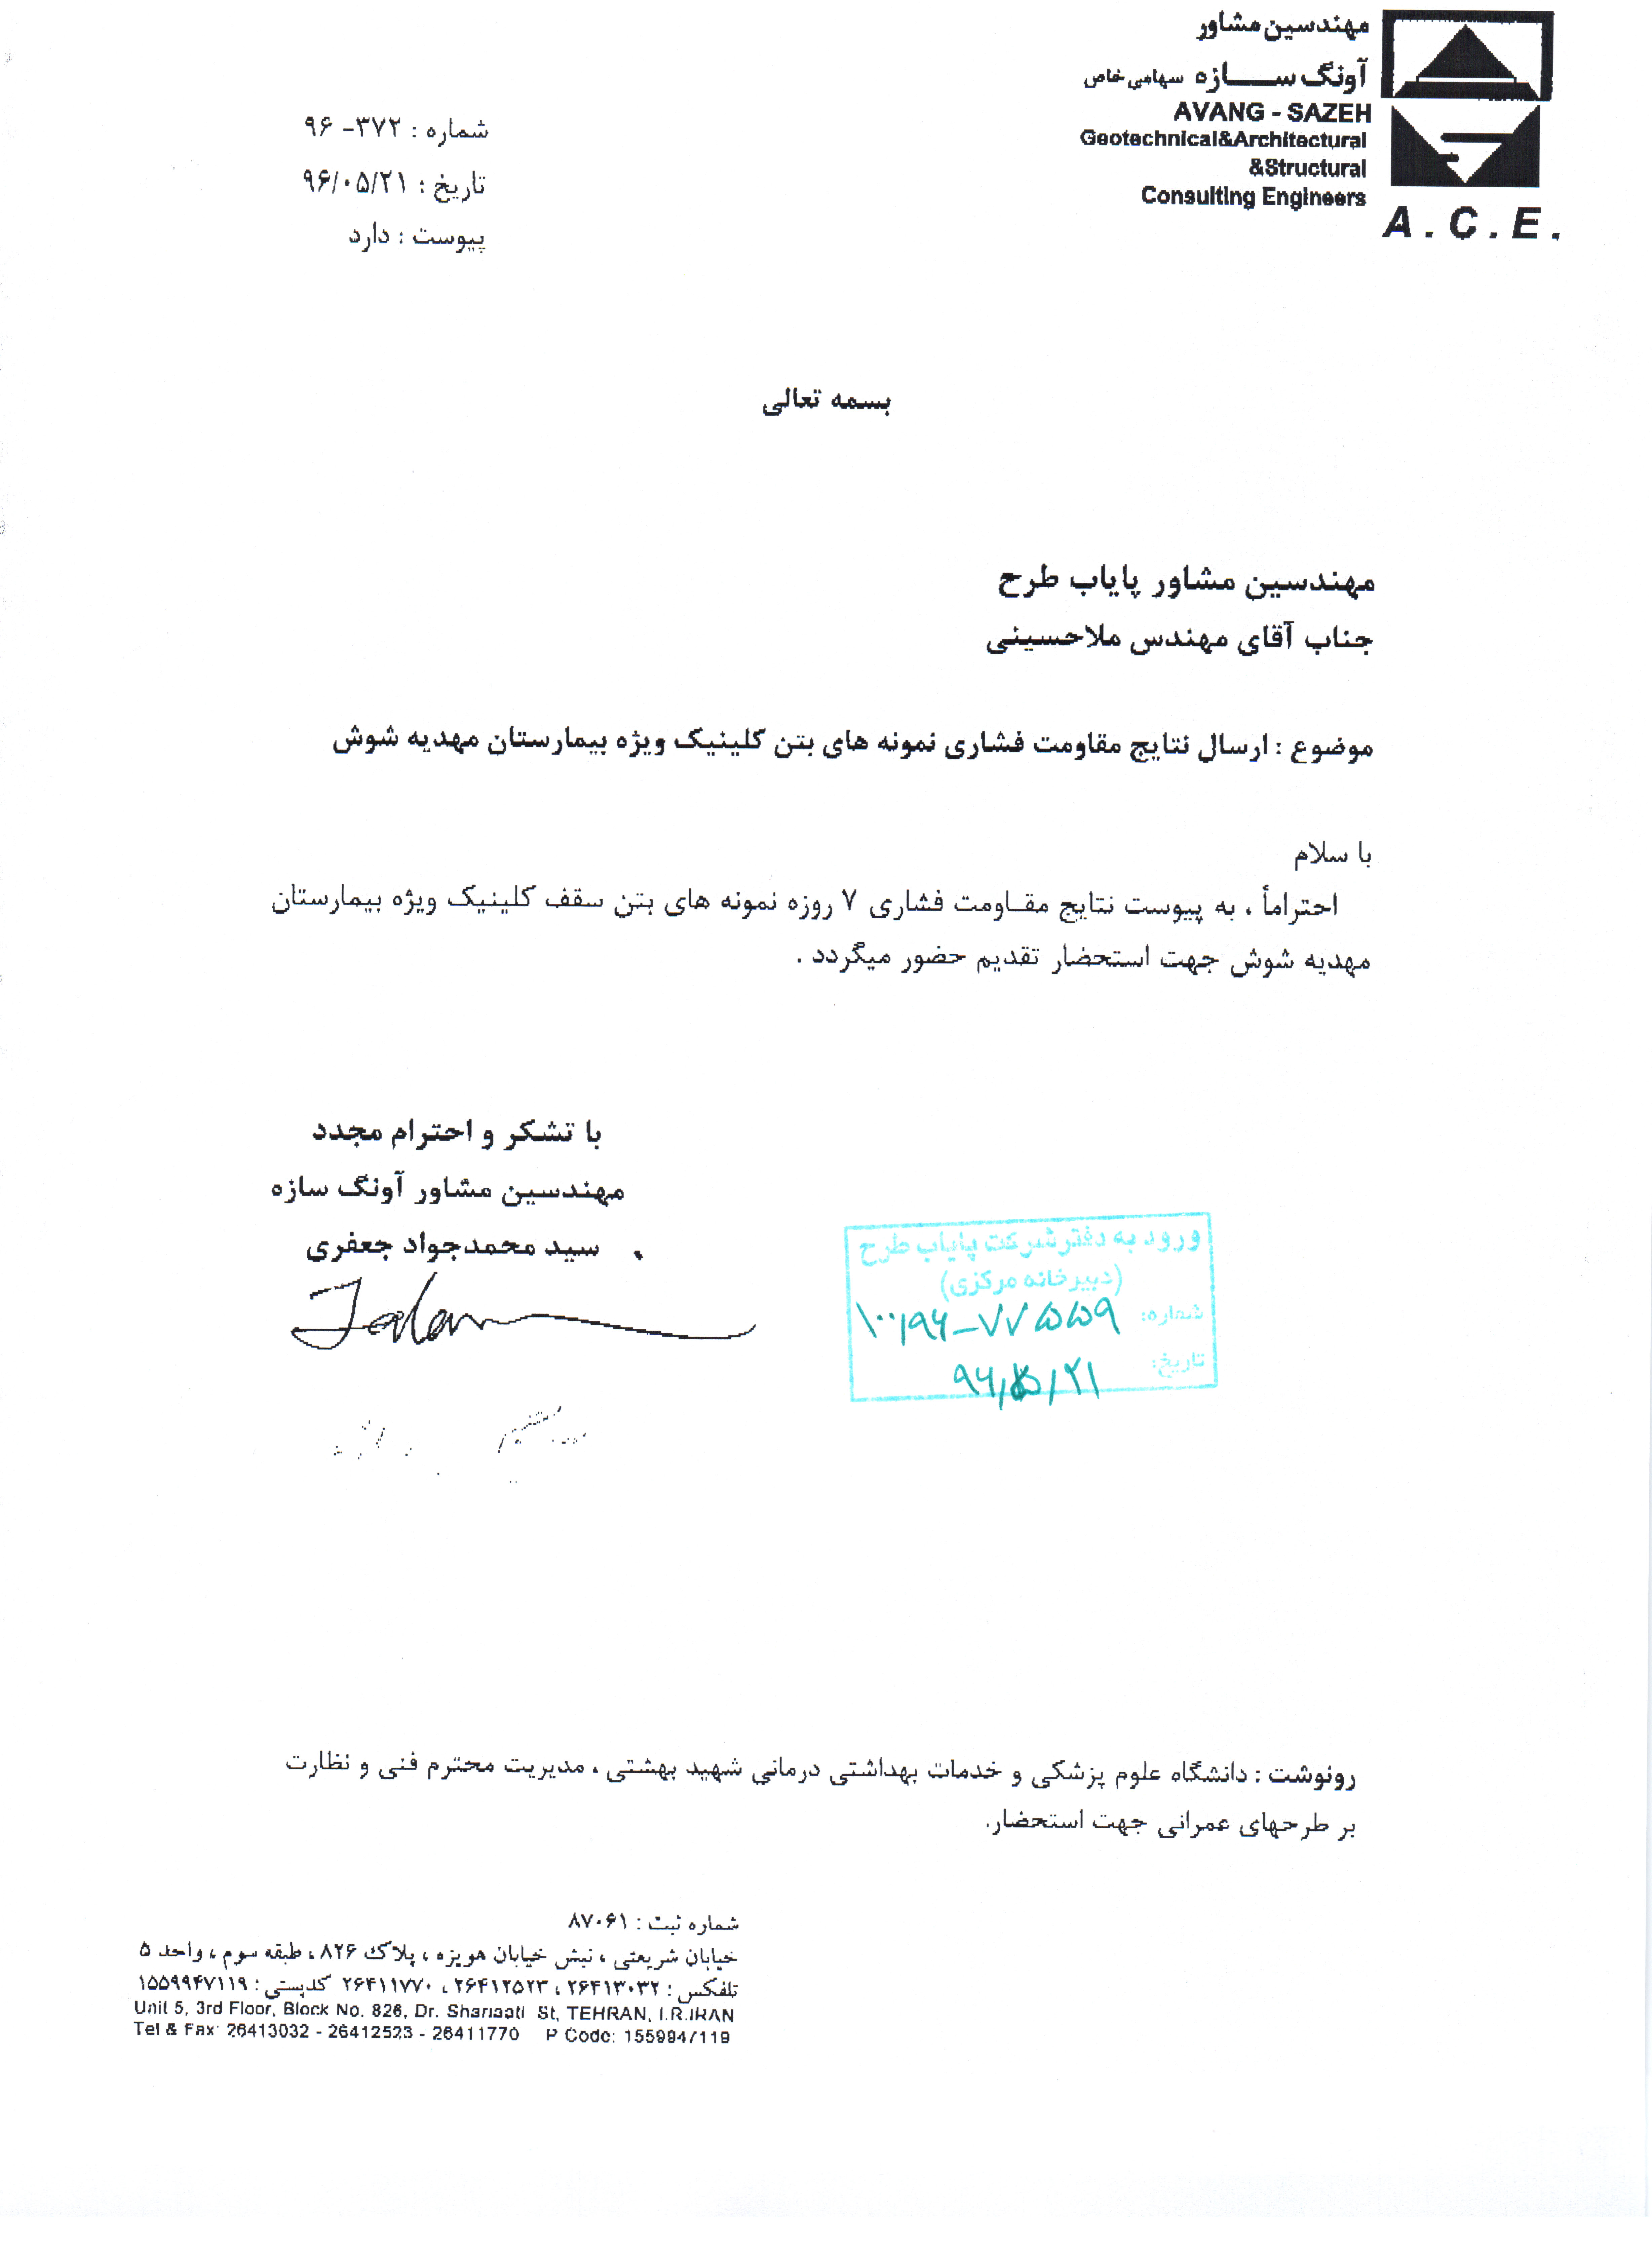 مهندسین مشاور
آونگ ســـازه سهامی خاص
AVANG - SAZEH
Geotechnical&Architectural
&Structural
Consulting Engineers
A . C . E .
شماره : ۳۷۲- ۹۶
تاریخ : ۹۶/۰۵/۲۱
پیوست : دارد
بسمه تعالی
مهندسین مشاور پایاب طرح
جناب آقای مهندس ملاحسینی
موضوع : ارسال نتایج مقاومت فشاری نمونه های بتن کلینیک ویژه بیمارستان مهدیه شوش
با سلام
احتراماً ، به پیوست نتایج مقـاومت فشاری ۷ روزه نمونه های بتن سقف کلینیک ویژه بیمارستان
مهدیه شوش جهت استحضار تقدیم حضور میگردد .
با تشکر و احترام مجدد
مهندسین مشاور آونگ سازه
سید محمدجواد جعفری
ورود به دفتر شرکت پایاب طرح
(دبیرخانه مرکزی)
شماره:
تاریخ: ۹۶/۵/۲۱
رونوشت : دانشگاه علوم پزشکی و خدمات بهداشتی درمانی شهید بهشتی ، مدیریت محترم فنی و نظارت
بر طرحهای عمرانی جهت استحضار.
شماره ثبت : ۸۷۰۶۱
خیابان شریعتی ، نبش خیابان هویزه ، پلاک ۸۲۶ ، طبقه سوم ، واحد ۵
تلفکس : ۲۶۴۱۳۰۳۲ ، ۲۶۴۱۲۵۲۳ ، ۲۶۴۱۱۷۷۰ کدپستی : ۱۵۵۹۹۴۷۱۱۹
Unit 5, 3rd Floor, Block No. 826, Dr. Shariaati St, TEHRAN, I.R.IRAN
Tel & Fax: 26413032 - 26412523 - 26411770 P Code: 1559947119